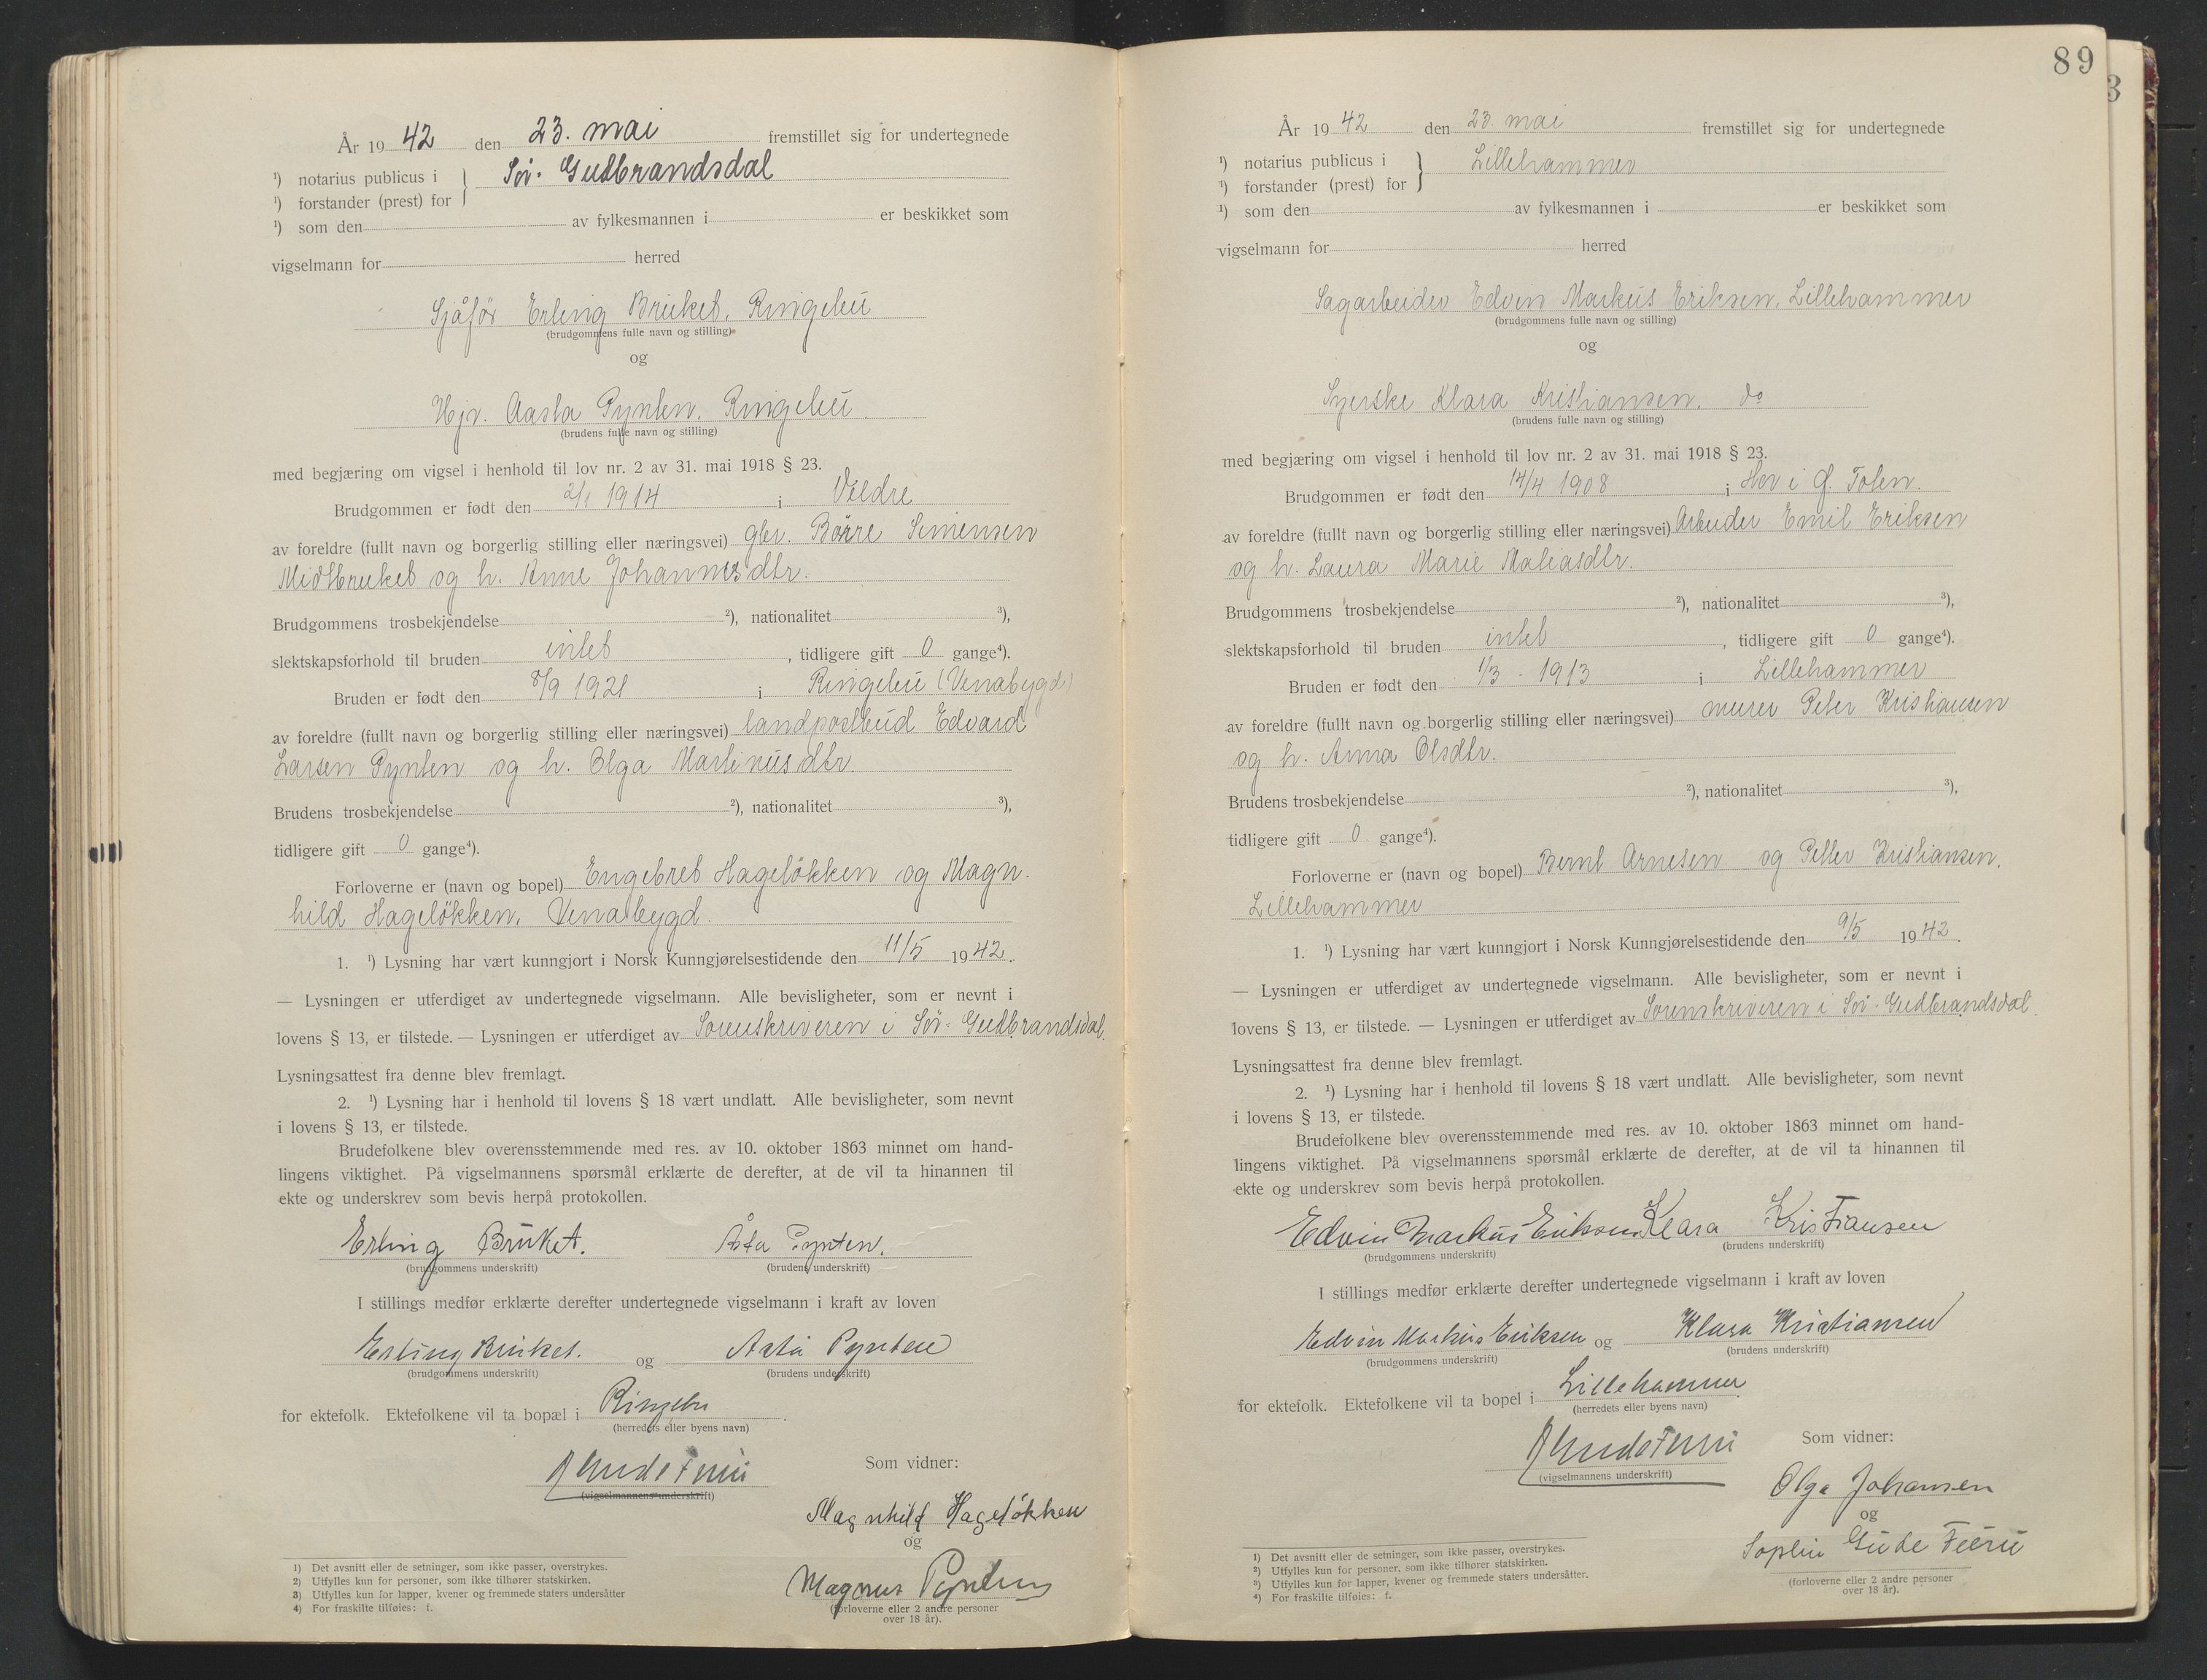 År 19 42 den 23. mai fremstillet sig for undertegnede
¹) notarius publicus i } Sör-Gudbrandsdal
¹) forstander (prest) for
¹) som den av fylkesmannen i er beskikket som
vigselmann for herred
Sjåför Erling Bruket, Ringebu
(brudgommens fulle navn og stilling)
og
Hjv. Aasta Pynten, Ringebu
(brudens fulle navn og stilling)
med begjæring om vigsel i henhold til lov nr. 2 av 31. mai 1918 § 23.
Brudgommen er født den 2/1 1914 i Veldre
av foreldre (fullt navn og borgerlig stilling eller næringsvei) gbr. Börre Simensen
Midtbruket og h. Anne Johannesdtr.
Brudgommens trosbekjendelse ²), nationalitet ³),
slektskapsforhold til bruden intet, tidligere gift 0 gange⁴).
Bruden er født den 8/9 1921 i Ringebu (Venabygd)
av foreldre (fullt navn og borgerlig stilling eller næringsvei) landpostbud Edvard
Larsen Pynten og h. Olga Martinusdtr.
Brudens trosbekjendelse ²), nationalitet ³),
tidligere gift 0 gange⁴).
Forloverne er (navn og bopel) Engebret Hagelökken og Magn-
hild Hagelökken, Venabygd.
1. ¹) Lysning har vært kunngjort i Norsk Kunngjørelsestidende den 11/5 1942.
— Lysningen er utferdiget av undertegnede vigselmann. Alle bevisligheter, som er nevnt i
lovens § 13, er tilstede. — Lysningen er utferdiget av Sorenskriveren i Sör-Gudbrandsdal.
Lysningsattest fra denne blev fremlagt.
2. ¹) Lysning har i henhold til lovens § 18 vært undlatt. Alle bevisligheter, som nevnt
i lovens § 13, er tilstede.
Brudefolkene blev overensstemmende med res. av 10. oktober 1863 minnet om hand-
lingens viktighet. På vigselmannens spørsmål erklærte de derefter, at de vil ta hinannen til
ekte og underskrev som bevis herpå protokollen.
Erling Bruket. Åsta Pynten.
(brudgommens underskrift) (brudens underskrift)
I stillings medfør erklærte derefter undertegnede vigselmann i kraft av loven
Erling Bruket. og Asta Pynten
(brudgommens underskrift) (brudens underskrift)
for ektefolk. Ektefolkene vil ta bopæl i Ringebu.
(herredets eller byens navn)
(vigselmannens underskrift)
Som vidner:
Magnhild Hagelökken
og
Magnus Pynten
(forloverne eller 2 andre personer
over 18 år).
1) Det avsnitt eller de setninger, som ikke passer, overstrykes.
2) Utfylles kun for personer, som ikke tilhører statskirken.
3) Utfylles kun for lapper, kvener og fremmede staters undersåtter
4) For fraskilte tilføies: f.
89
År 19 42 den 23. mai fremstillet sig for undertegnede
¹) notarius publicus i } Lillehammer
¹) forstander (prest) for
¹) som den av fylkesmannen i er beskikket som
vigselmann for herred
Sagarbeider Edvin Markus Eriksen, Lillehammer
(brudgommens fulle navn og stilling)
og
Syerske Klara Kristiansen. do
(brudens fulle navn og stilling)
med begjæring om vigsel i henhold til lov nr. 2 av 31. mai 1918 § 23.
Brudgommen er født den 14/4 1908 i Hov i Ø. Toten.
av foreldre (fullt navn og borgerlig stilling eller næringsvei) Arbeider Emil Eriksen
og h. Laura Marie Matiasdtr.
Brudgommens trosbekjendelse ²), nationalitet ³),
slektskapsforhold til bruden intet, tidligere gift 0 gange⁴).
Bruden er født den 1/3 - 1913 i Lillehammer
av foreldre (fullt navn og borgerlig stilling eller næringsvei) murer Peter Kristiansen
og h. Anna Olsdtr.
Brudens trosbekjendelse ²), nationalitet ³),
tidligere gift 0 gange⁴).
Forloverne er (navn og bopel) Bernt Arnesen og Petter Kristiansen,
Lillehammer
1. ¹) Lysning har vært kunngjort i Norsk Kunngjørelsestidende den 9/5 1942.
— Lysningen er utferdiget av undertegnede vigselmann. Alle bevisligheter, som er nevnt i
lovens § 13, er tilstede. — Lysningen er utferdiget av Sorenskriveren i Sör-Gudbrandsdal.
Lysningsattest fra denne blev fremlagt.
2. ¹) Lysning har i henhold til lovens § 18 vært undlatt. Alle bevisligheter, som nevnt
i lovens § 13, er tilstede.
Brudefolkene blev overensstemmende med res. av 10. oktober 1863 minnet om hand-
lingens viktighet. På vigselmannens spørsmål erklærte de derefter, at de vil ta hinannen til
ekte og underskrev som bevis herpå protokollen.
Edvin Markus Eriksen Klara Kristiansen
(brudgommens underskrift) (brudens underskrift)
I stillings medfør erklærte derefter undertegnede vigselmann i kraft av loven
Edvin Markus Eriksen og Klara Kristiansen
(brudgommens underskrift) (brudens underskrift)
for ektefolk. Ektefolkene vil ta bopel i Lillehammer
(herredets eller byens navn)
(vigselmannens underskrift)
Som vidner:
Olga Johansen
og
Gude
(forloverne eller 2 andre personer
over 18 år).
1) Det avsnitt eller de setninger, som ikke passer, overstrykes.
2) Utfylles kun for personer, som ikke tilhører statskirken.
3) Utfylles kun for lapper, kvener og fremmede staters undersåtter.
4) For fraskilte tilføies: f.